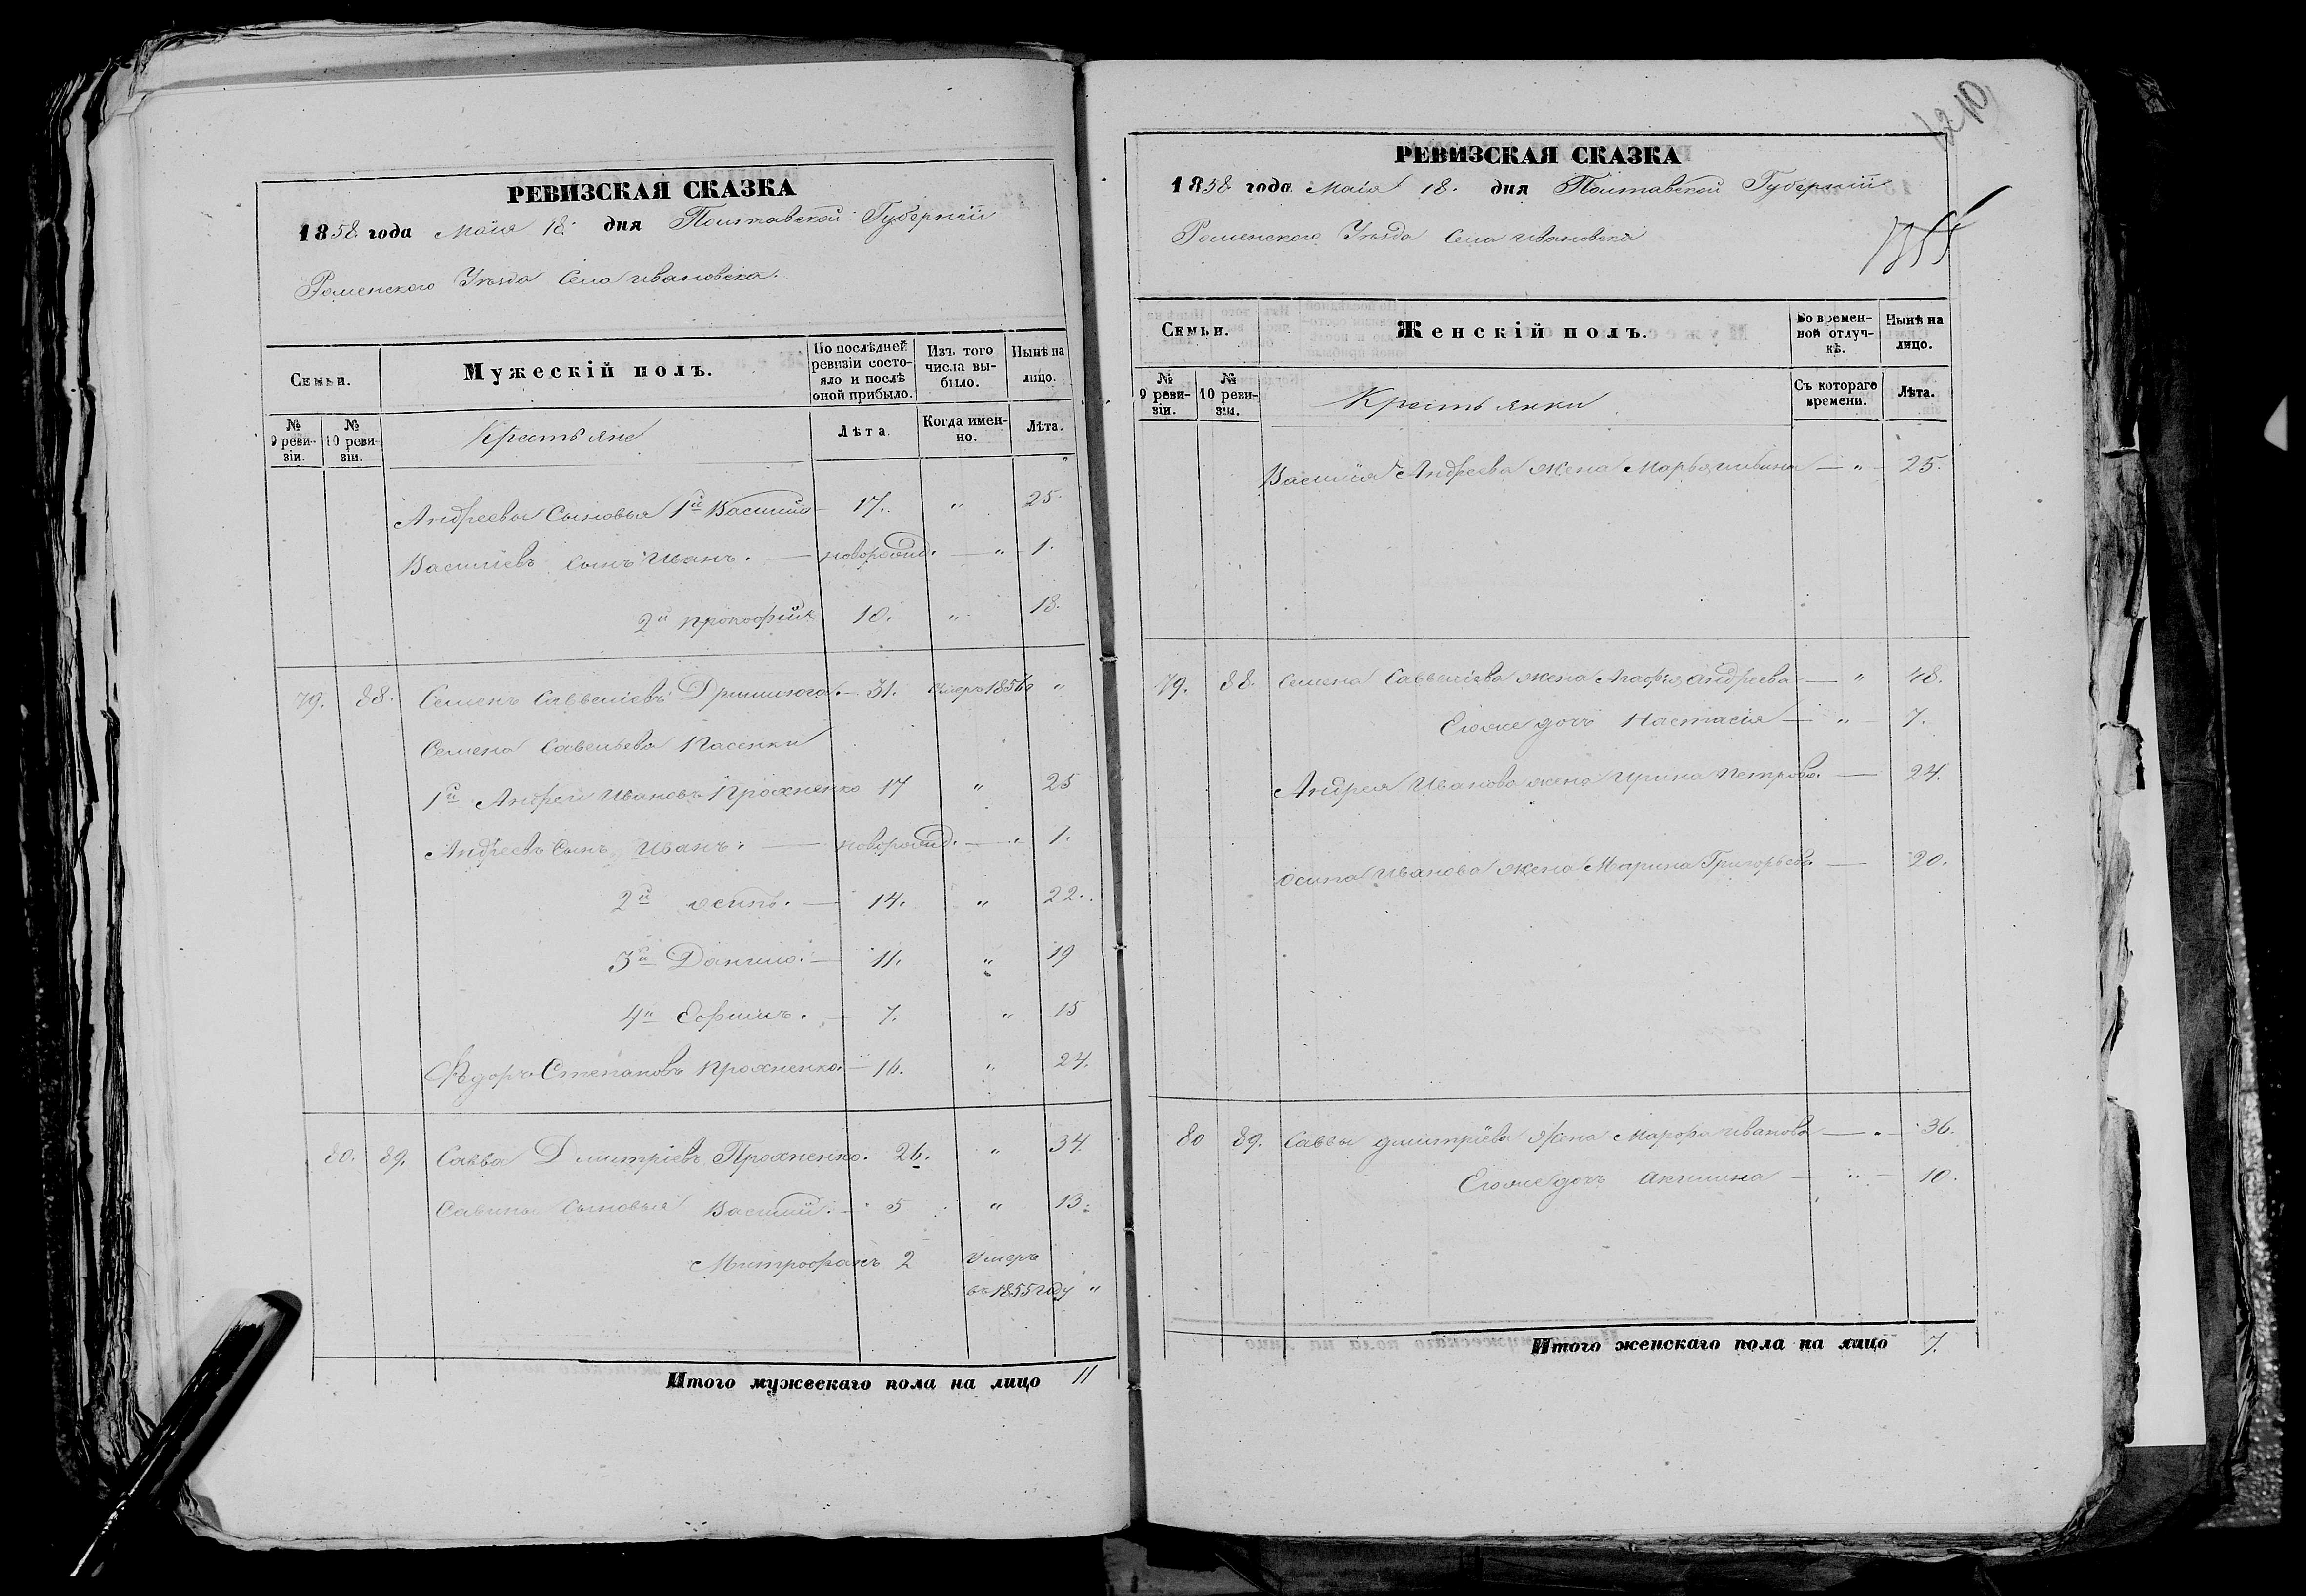 РЕВИЗСКАЯ СКАЗКА
1858 года Маія 18. дня Полтавской Губерніи
Роменского Уѣзда Села Ивановска.
Семьи.
Мужескій полъ.
По послѣдней ревизіи состояло и послѣ оной прибыло.
Изъ того числа выбыло.
Нынѣ на лицо.
№ 9 ревизіи.
№ 10 ревизіи.
Крестьяне
Лѣта.
Когда именно.
Лѣта.
Андреевы Сыновья 1й Василій 17. " 25.
Василіевъ сынъ Иванъ. — новорожд. — " 1.
2й Прокофій 10. " 18.
79. 88. Семенъ Савеліевъ — 31. Умеръ 1856 "
Семена Савельева Пасенки
1й Андрей Ивановъ Прохненко 17 " 25
Андреевъ Сынъ Иванъ. — новорожд. — " 1.
2й Осипъ. — 14. " 22.
3й Данило. — 11. " 19
4й Ефимъ. — 7. " 15
Ѳедоръ Степановъ Прохненко. — 16. " 24.
80. 89. Савва Дмитріевъ Прохненко. 26. " 34.
Савины Сыновья Василій. — 5 " 13.
Митрофанъ 2 Умеръ
въ 1855 году "
Итого мужескаго пола на лицо 11
1210
РЕВИЗСКАЯ СКАЗКА
1858 года Маія 18. дня Полтавской Губерніи
Роменского Уѣзда Села Ивановска
Семьи.
Женскій полъ.
Во временной отлучкѣ.
Нынѣ на лицо.
№ 9 ревизіи.
№ 10 ревизіи.
Крестьянки
Съ котораго времени.
Лѣта.
Василія Андреева жена Марья — " — 25.
79. 88. Семена Савеліева жена Агафія Андреева — " 48.
Егоже дочь Настасія — " — 7.
Андрея Иванова жена Ирина Петрова. — 24.
Осипа Иванова жена Марина Григорьева — 20.
80 89. Саввы Дмитріева Жена Марфа Иванова — " — 36.
Егоже дочь Акилина — " — 10.
Итого женскаго пола на лицо 7.